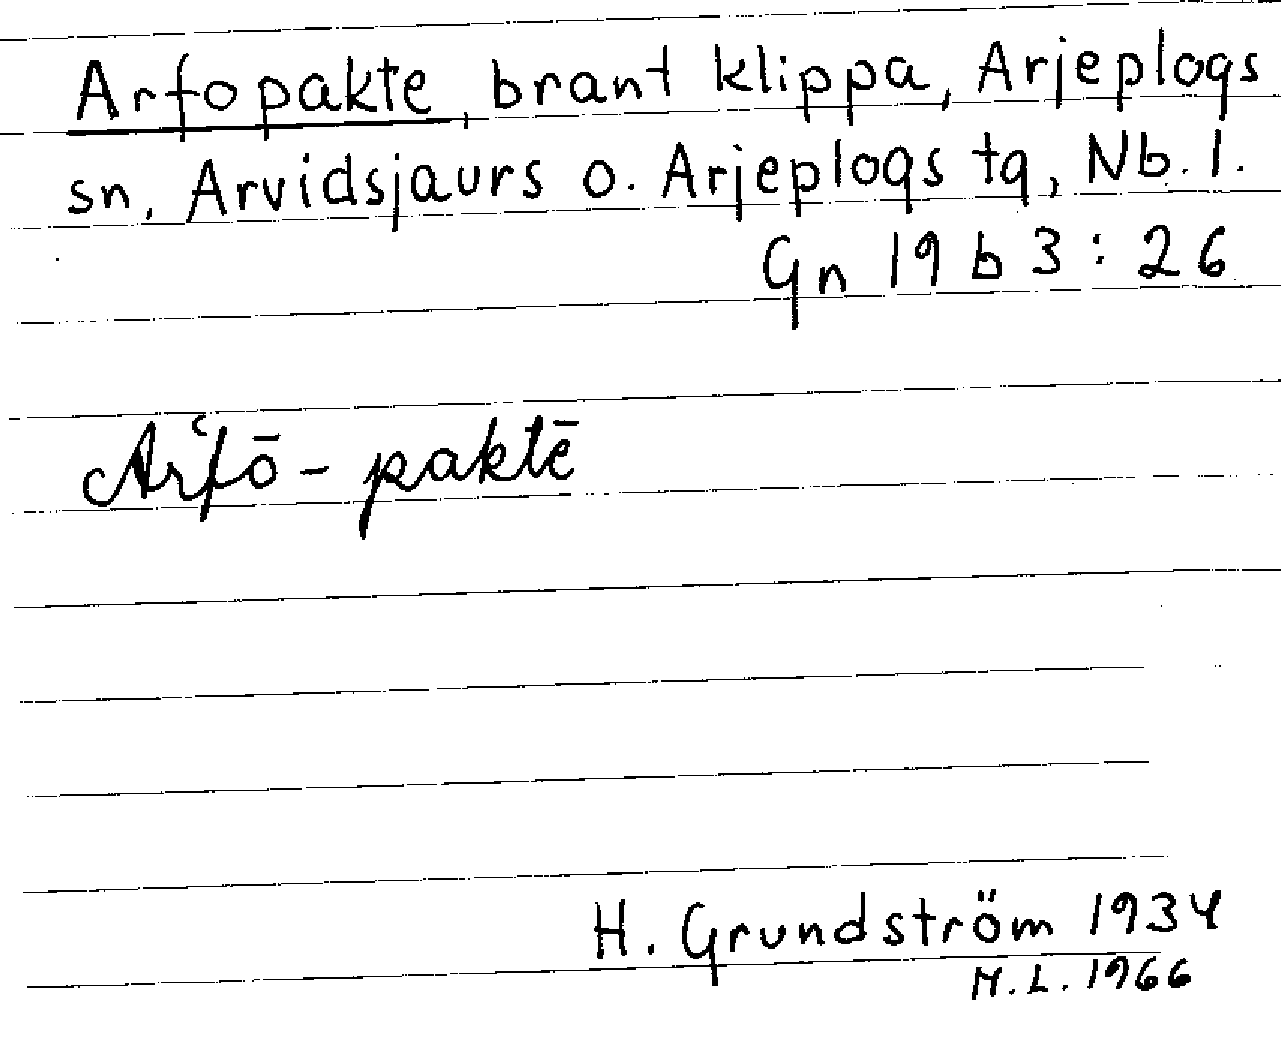 Arfopakte, brant klippa, Arjeplogs
sn, Arvidsjaurs o. Arjeplogs tg, Nb. l.
Gn 19 b 3 : 26
Arʿfō - paktē
H. Grundström 1934
M. L. 1966